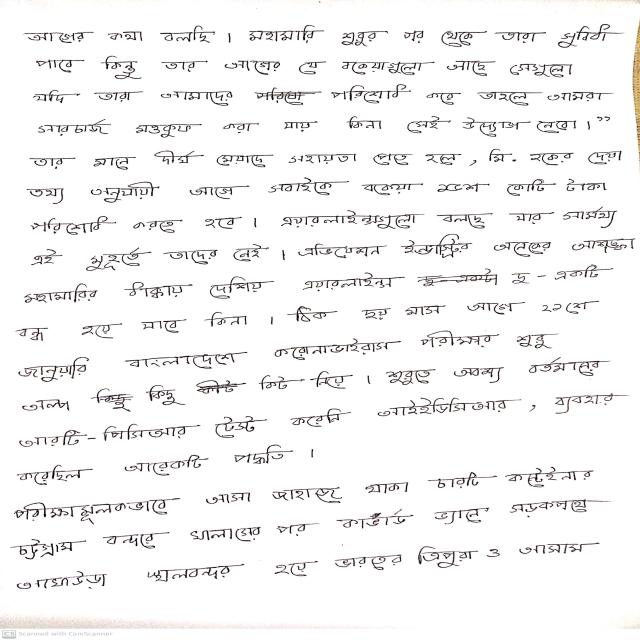 আগের কথা বলছি । মহামারি শুরুর পর থেকে তারা সুবিধা
পাবে কিন্তু তার আগের যে বকেয়াগুলো আছে সেগুলো
যদি তারা আমাদের পরিশোধ করে তাহলে আমরা
সারচার্জ মওকুফ করা যায় কিনা সেই উদ্যোগ নেবো ।”
তার মানে দীর্ঘ মেয়াদে সহায়তা পেতে হলে , মি. হকের দেয়া
তথ্য অনুযায়ী আগে সবাইকে বকেয়া কোটি টাকা
পরিশোধ করতে হবে । এয়ারলাইন্সগুলো বলছে যার সামর্থ্য
এই মুহূর্তে তাদের নেই । এভিয়েশন ইন্ডাস্ট্রির অনেকের আশঙ্কা
মহামারির ধাক্কায় দেশিয় এয়ারলাইন্স দু - একটি
বন্ধ হয়ে যাবে কিনা । ঠিক ছয় মাস আগে ২১শে
জানুয়ারি বাংলাদেশে করোনাভাইরাস পরীক্ষার শুরু
অল্প কিছু কিট দিয়ে । শুরুতে অবশ্য বর্তমানের
আরটি - পিসিআর টেস্ট করেনি আইইডিসিআর , ব্যবহার
করেছিল আরেকটি পদ্ধতি ।
পরীক্ষামূলকভাবে আসা জাহাজে থাকা চারটি কন্টেইনার
চট্টগ্রাম বন্দরে খালাসের পর কাভার্ড ভ্যানে সড়কপথে
আখাউড়া স্থলবন্দর হয়ে ভারতের ত্রিপুরা ও আসাম
CS Scanned with CamScanner